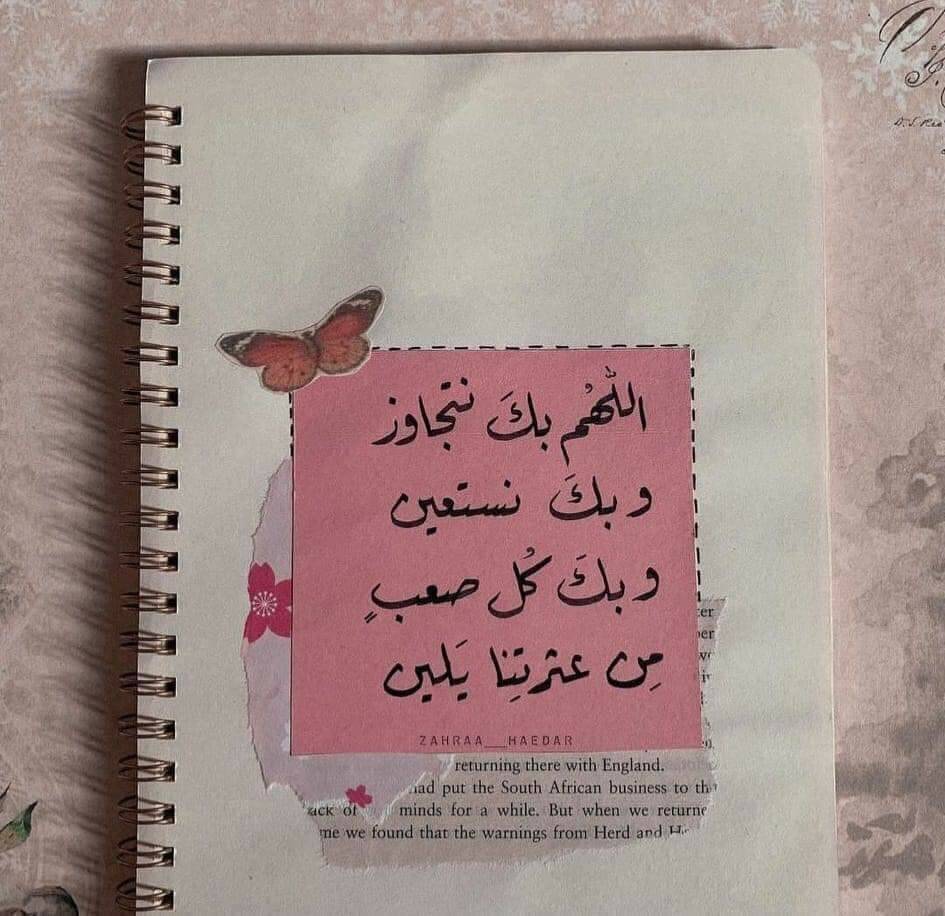 اللهُم بكَ نتجاوز
وبكَ نستعين
وبكَ كُل صعبٍ
مِن عثرتِنا يَلين
ZAHRAA__HAEDAR
returning there with England.
had put the South African business to th
ack of minds for a while. But when we returne
me we found that the warnings from Herd and